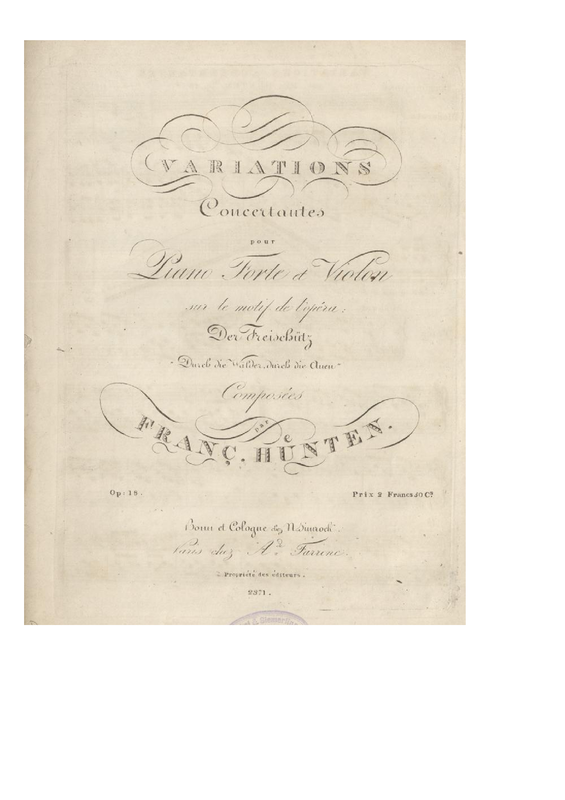 VARIATIONS
Concertantes
pour
Piano Forte et Violon
sur le motif de l'opéra:
Der Freischütz
"Durch die Wälder, durch die Auen"
Composées
par
FRANÇ. HÜNTEN.
Op: 18. Prix 2 Francs 50 Cs
Bonn et Cologne chez N. Simrock.
Paris chez Ad. Farrenc.
Propriété des éditeurs.
2371.